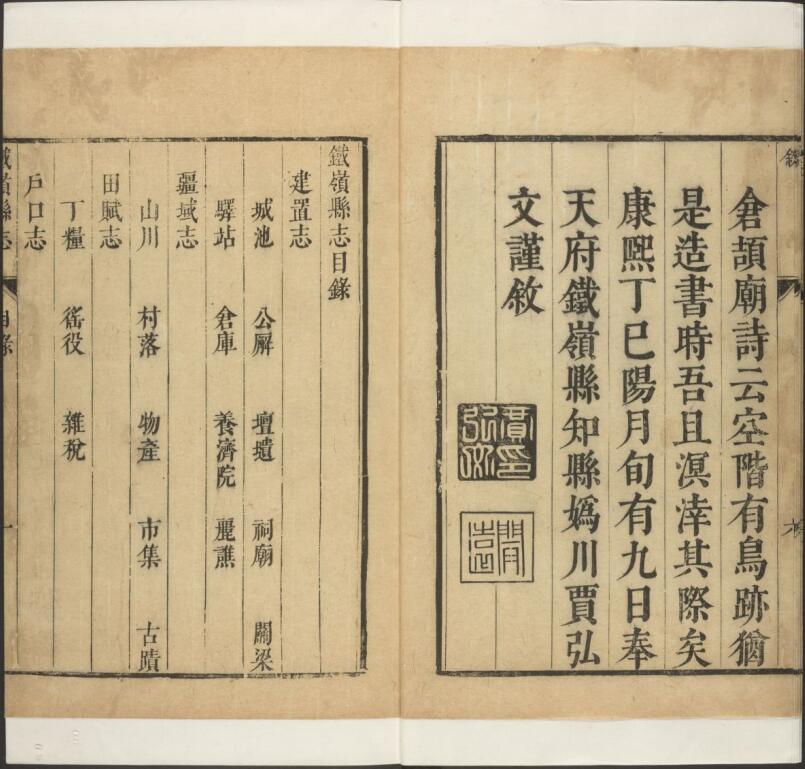 倉頡廟詩云空階有鳥跡猶
是造書時吾且溟涬其際矣
康熙丁巳陽月旬有九日奉
天府鐵嶺縣知縣嬀川賈弘
文謹敘
鐵嶺縣志目錄
建置志
城池 公廨 壇壝 祠廟 關梁
驛站 倉庫 養濟院 麗譙
疆域志
山川 村落 物產 市集 古蹟
田賦志
丁糧 徭役 雜稅
戶口志
鐵嶺縣志 目錄 一